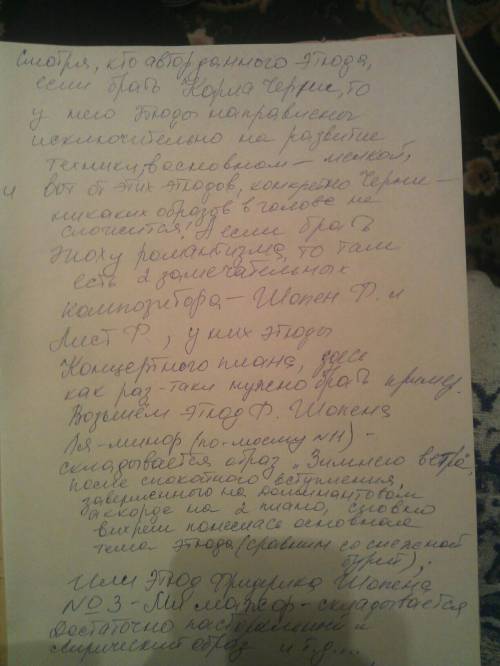 Смотря, кто автор данного этюда,
если брать Карла Черни, то
у него этюды направлены
исключительно на развитие
техники, в основном – мелкой,
и вот от этих этюдов, конкретно Черни –
никаких образов в голове не
сложится! А если брать
Эпоху романтизма, то там
есть 2 замечательных
композитора – Шопен Ф. и
Лист Ф., у них этюды
Концертного плана, здесь
как раз-таки нужно брать пример.
Возьмём Этюд Ф. Шопена
Ля-минор (по-моему №11) –
складывается образ "Зимнего ветра",
после спокойного вступления,
завершенного на доминантовом
аккорде на 2 пиано, словно
вихрем понеслась основная
тема этюда (сравним со снежной
бурей);
Или Этюд Фридерика Шопена
№3 – Ми мажор – складывается
Достаточно пасторальный и
Лирический образ и т.д....